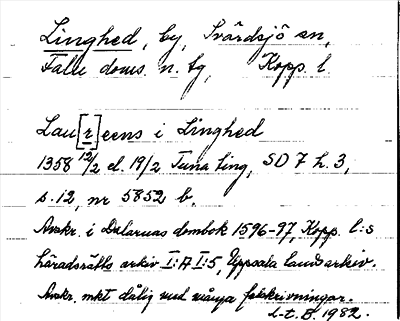 Linghed, by, Svärdsjö sn,
Falu doms. n. tg, Kopp. l.
Lau[r]eens i Linghed
1358 12/2 el. 19/2 Tuna ting, SD 7 h. 3,
s. 12, nr 5852 b.
Avskr. i Dalarnas dombok 1596-97, Kopp. l:s
häradsrätts arkiv I:A I:5, Uppsala landsarkiv.
Avskr. mkt dålig med många felskrivningar.
L-t. B. 1982.